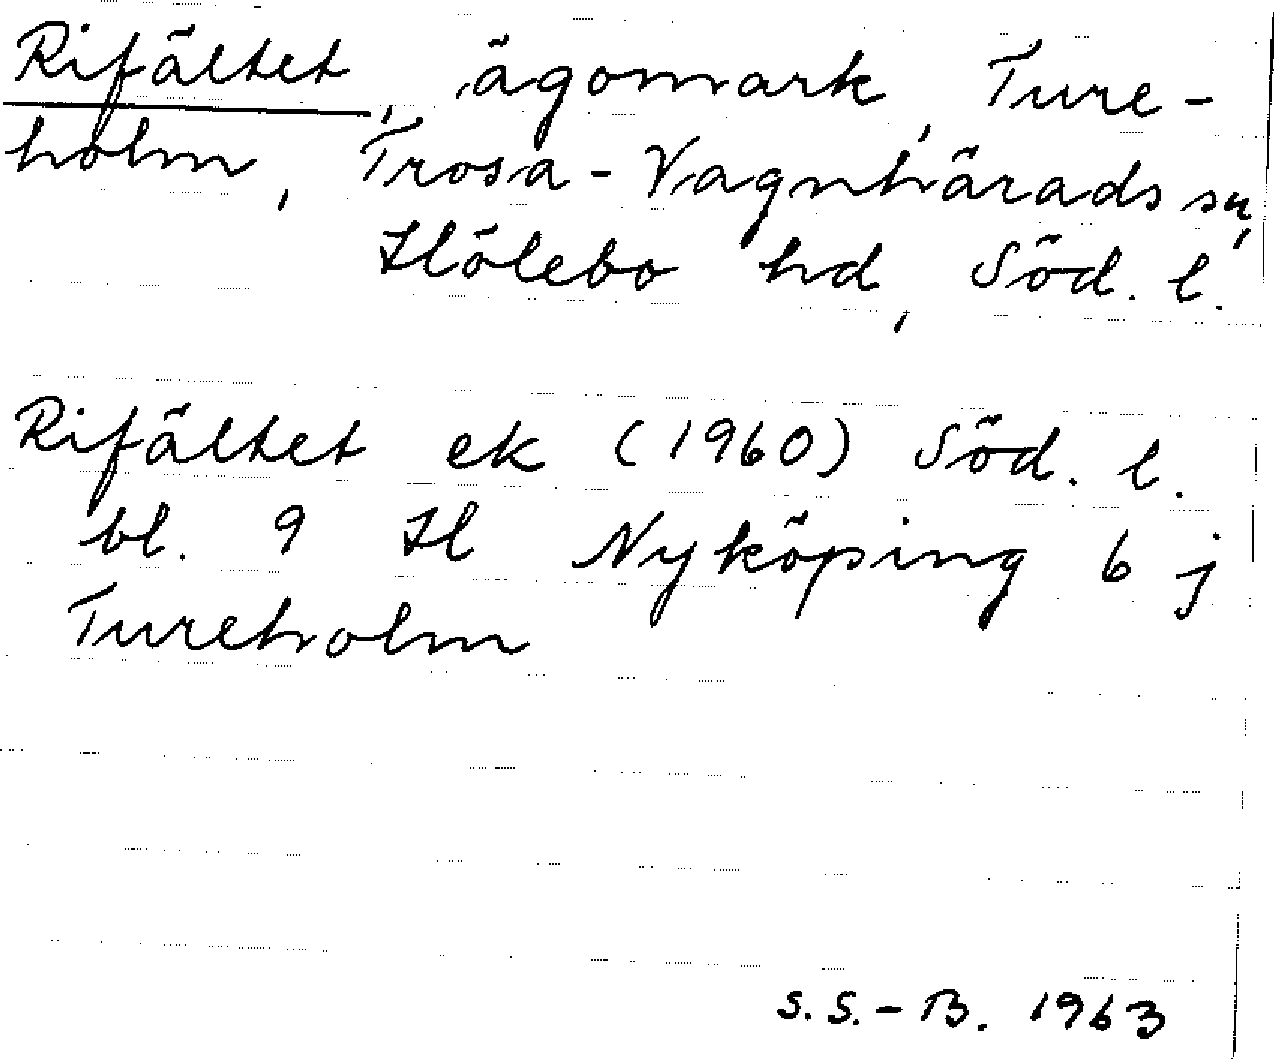 Rifältet, ägomark, Ture-
holm, Trosa-Vagnhärads sn,
Hölebo hd, Söd. l.
Rifältet ek (1960) Söd. l.
bl. 9 H Nyköping 6 j
Tureholm
S.S.-B. 1963